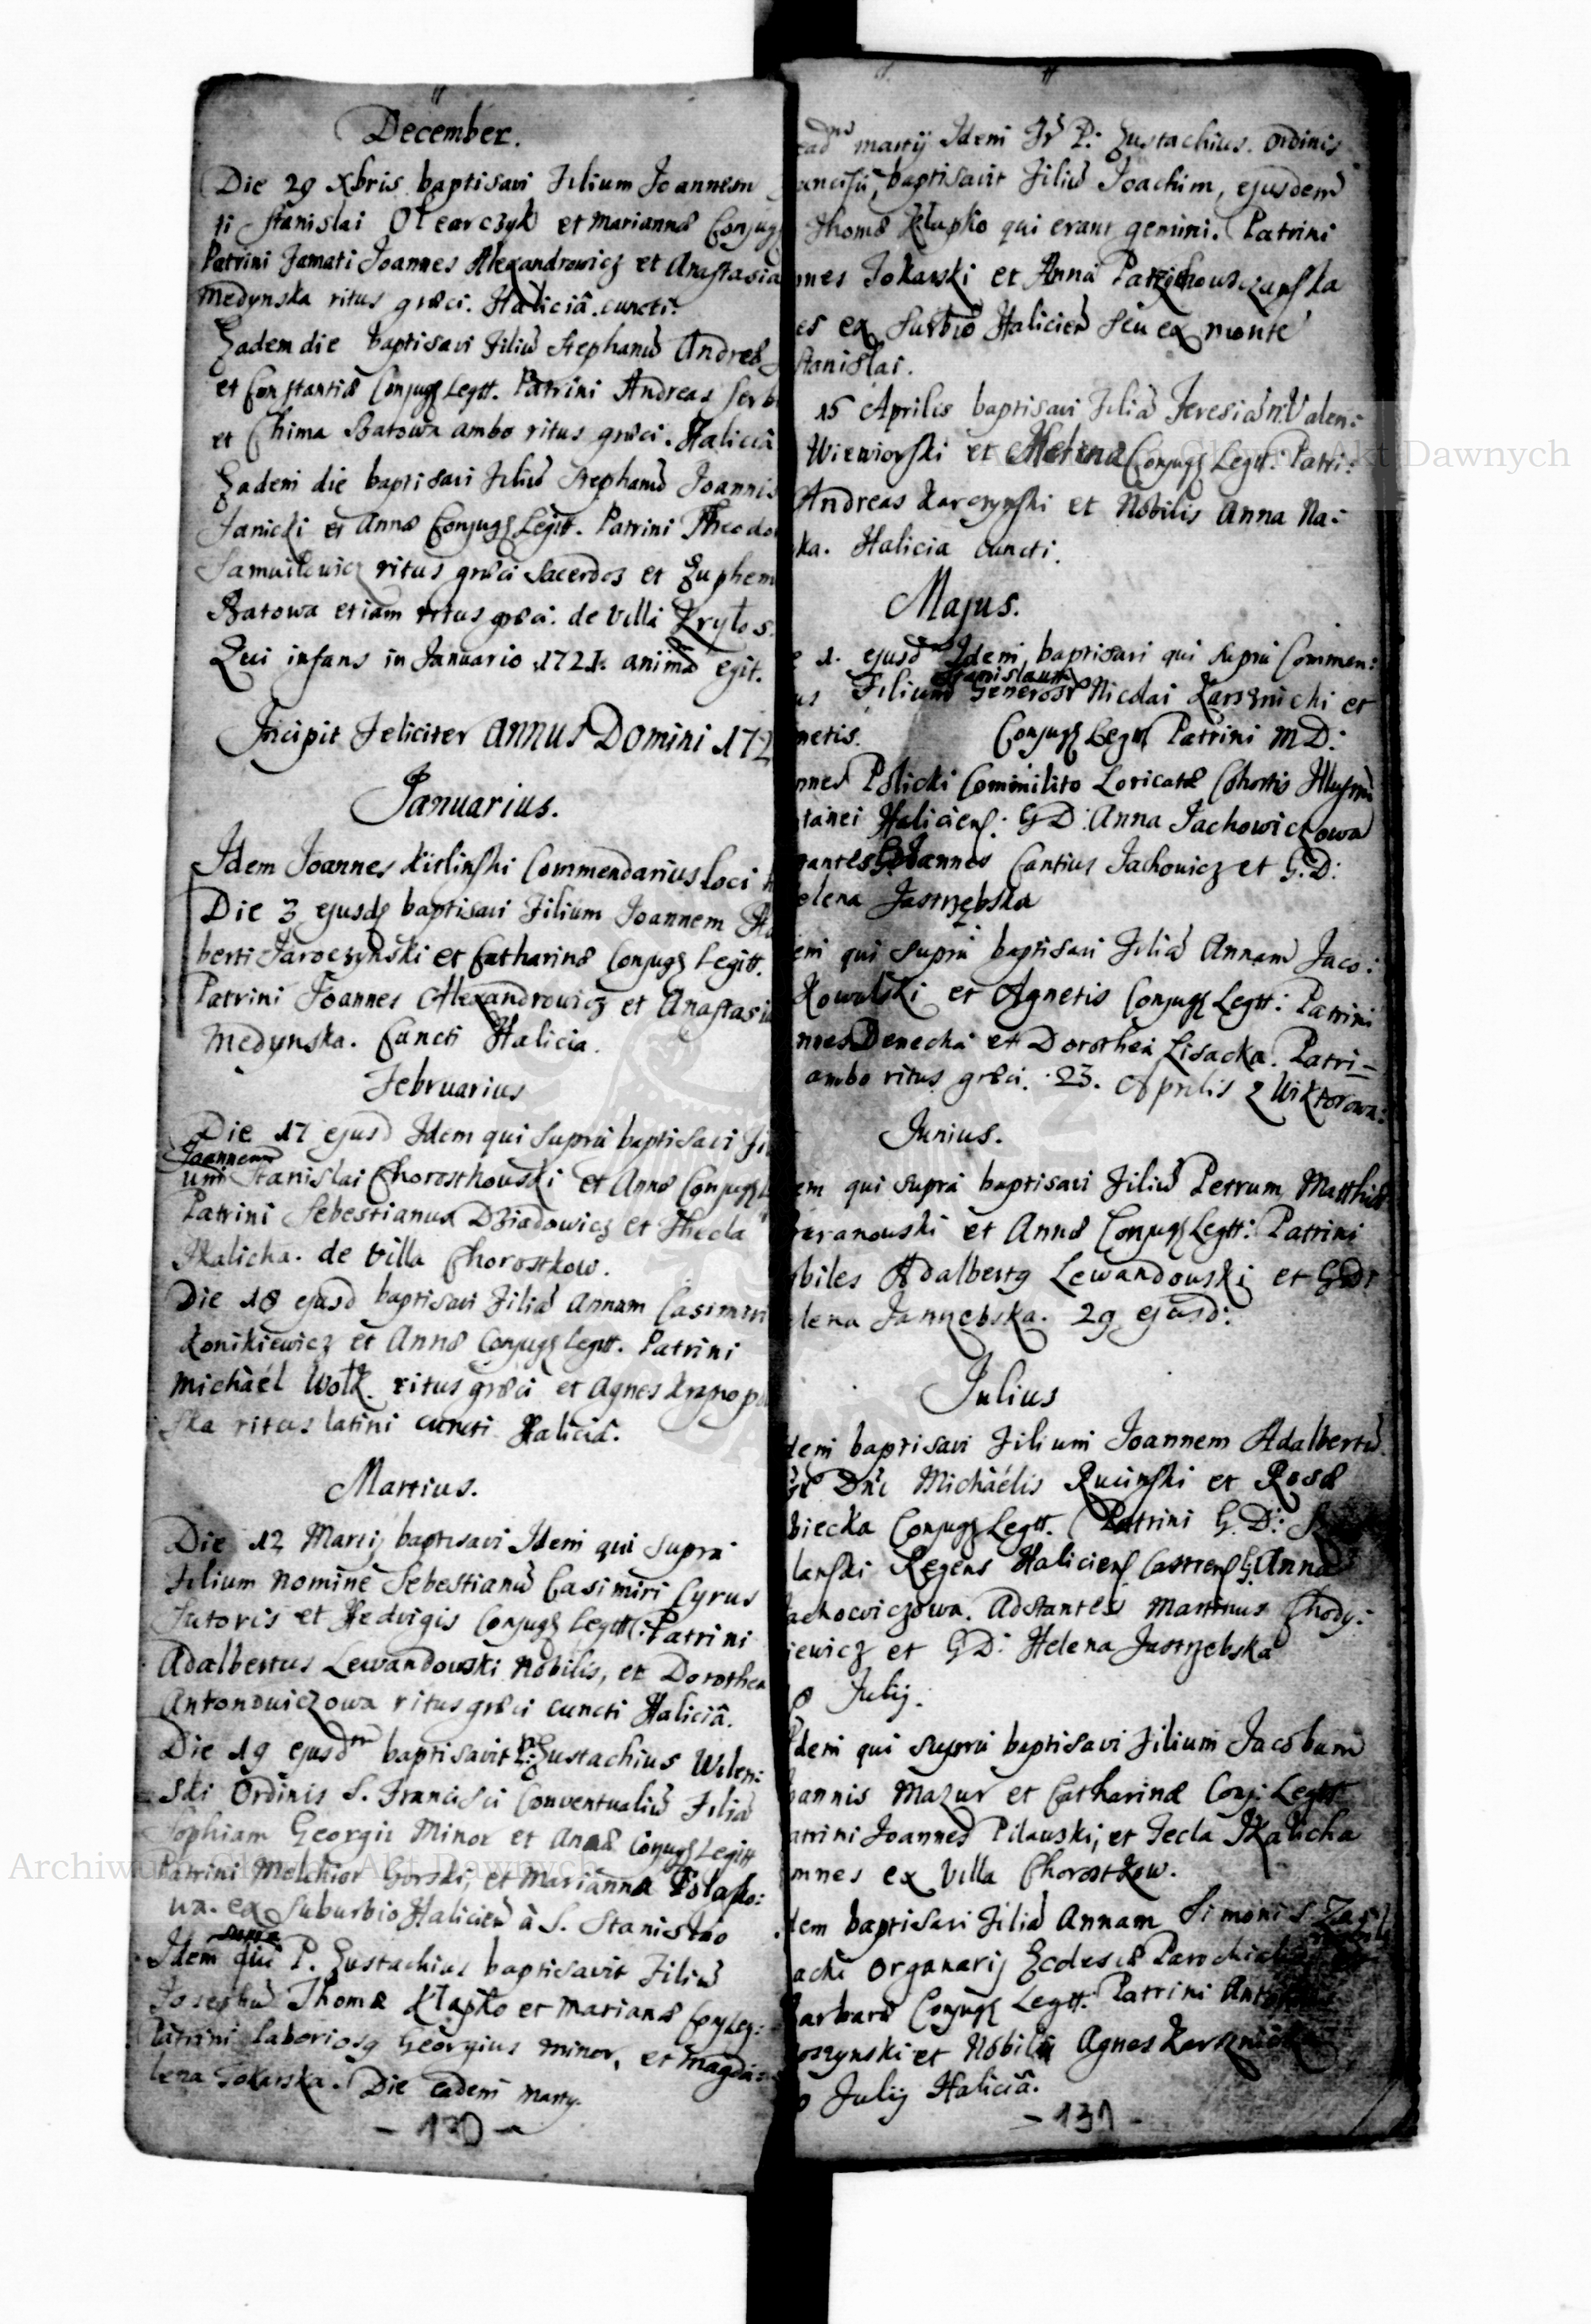 December.
Die 29 Xbris baptisavi Filium Joannem
ti Stanislai Olearczyk et Mariannæ Conjug
Patrini Famati Joannes Alexandrowicz et Anastasia
Medynska ritus græci. Haliciâ cuncti.
Eadem die baptisavi Filiū Stephanū Andreæ
et Constantiæ Conjug Legtt. Patrini Andreas Serb
et Chima Batowa ambo ritus græci. Haliciâ
Eadem die baptisavi Filiū Stephanū Joannis
Janicki et Annæ Conjug Legitt. Patrini Theodo
Samuilowicz ritus græci Sacerdos et Euphem
Batowa etiam ritus græci. de Villa Krylos.
Qui infans in Januario 1721. animā egit.
Incipit Feliciter ANNUS Domini 172
Januarius.
Idem Joannes Kirlinski Commendarius loci h
Die 3 ejusd baptisavi Filium Joannem
berti Jaroczynski et Catharinæ Conjug Legitt.
Patrini Joannes Alexandrowicz et Anastasia
Medynska. Cuncti Halicia.
Februarius
Die 17 ejusd Idem qui supra baptisavi Fi
Joannem
um Stanislai Chorosthouski et Annæ Conjug L
Patrini Sebestianus Dziadowicz et Thecla
Skalicha. de Villa Chorostkow.
Die 18 ejusd baptisavi Filiā Annam Casimiri
Konikiewicz et Annæ Conjug Legtt. Patrini
Michaël Wołk ritus græci et Agnes Krapop
ska ritus latini cuncti Haliciâ.
Martius.
Die 12 Martij baptisavi Idem qui supra
Filium nomine Sebestianū Casimiri Cyrus
Sutoris et Hedvigis Conjug Legitt. Patrini
Adalbertus Lewandowski Nobilis, et Dorothea
Antonowiczowa ritus græci cuncti Haliciâ.
Die 19 ejusdm baptisavit P: Eustachius Wilen:
ski Ordinis S. Francisci Conventualiū Filiā
Sophiam Georgii Minor et Annæ Conjug Legitt
Patrini Melchior Gorski, et Marianna
wa. ex Suburbio Halicien à S. Stanislao
supra
Idem qui P. Eustachius baptisavit Filiū
Josephū Thomæ Kłapko et Marianæ Conj Leg:
Patrini Laboriosg Georgius Minor, et Magda:
lena Tokarska. Die eadem Marty.
- 130 -
ead marty Idem Fr P: Eustachius Ordinis
ancisci, baptisavit Filiū Joachim, ejusdem
Thomæ Kłapko qui erant gemini. Patrini
nnes Tokarski et Anna
es ex Suburbio Halicien Seu ex monte
Stanislai.
15 Aprilis baptisavi Filiā Teresiā Valen:
Wiewiorski et Helenæ Conjug Legtt: Patri:
Andreas Karczynski et Nobilis Anna Na:
ska. Halicia cuncti.
Majus.
e 1. ejusd Idem baptisavi qui supra Commen:
Stanislaum
us Filium Generosi Nicolai Karsznicki et
netis. Conjug Legtt Patrini M D:
nnes Policki Commilito Loricatæ Cohortis Illustri
tanei Haliciens: G D: Anna Jachowiczowa
tantes G. Joannes Cantius Jachowicz et G. D:
elena Jastrzębska
em qui supra baptisavi Filiā Annam Jaco:
Kowalski et Agnetis Conjug Legtt: Patrini
nnes Denecha et Dorothea Lisacka. Patri-
ambo ritus græci. 23. Aprilis z Wiktorowa:
Junius.
em qui supra baptisavi Filiū Petrum Matthiæ
aranouski et Annæ Conjug Legtt: Patrini
obiles Adalbertg Lewandouski et G D:
elena Jastrzebska. 29 ejusd:
Julius
dem baptisavi Filium Joannem Adalbertū
Dni Michaëlis Rucinski et Rosæ
biecka Conjug Legtt. Patrini G. D:
lanski Regens Haliciens Castrens G: Anna
achowiczowa. Adstantes Martinus Chody:
iewicz et G D: Helena Jastrzebska
8 Julij.
Idem qui supra baptisavi Filium Jacobum
oannis Mazur et Catharinæ Conj: Legtt
atrini Joannes Pilauski, et Tecla Skalicha
omnes ex Villa Chorostkow.
dem baptisavi Filiā Annam Simonis
achi Organarij Ecclesiæ Parochialis
arbaræ Conjug Legtt. Patrini
oszynski et Nobilis Agnes Karsznicka
Julij Haliciâ.
- 131 -